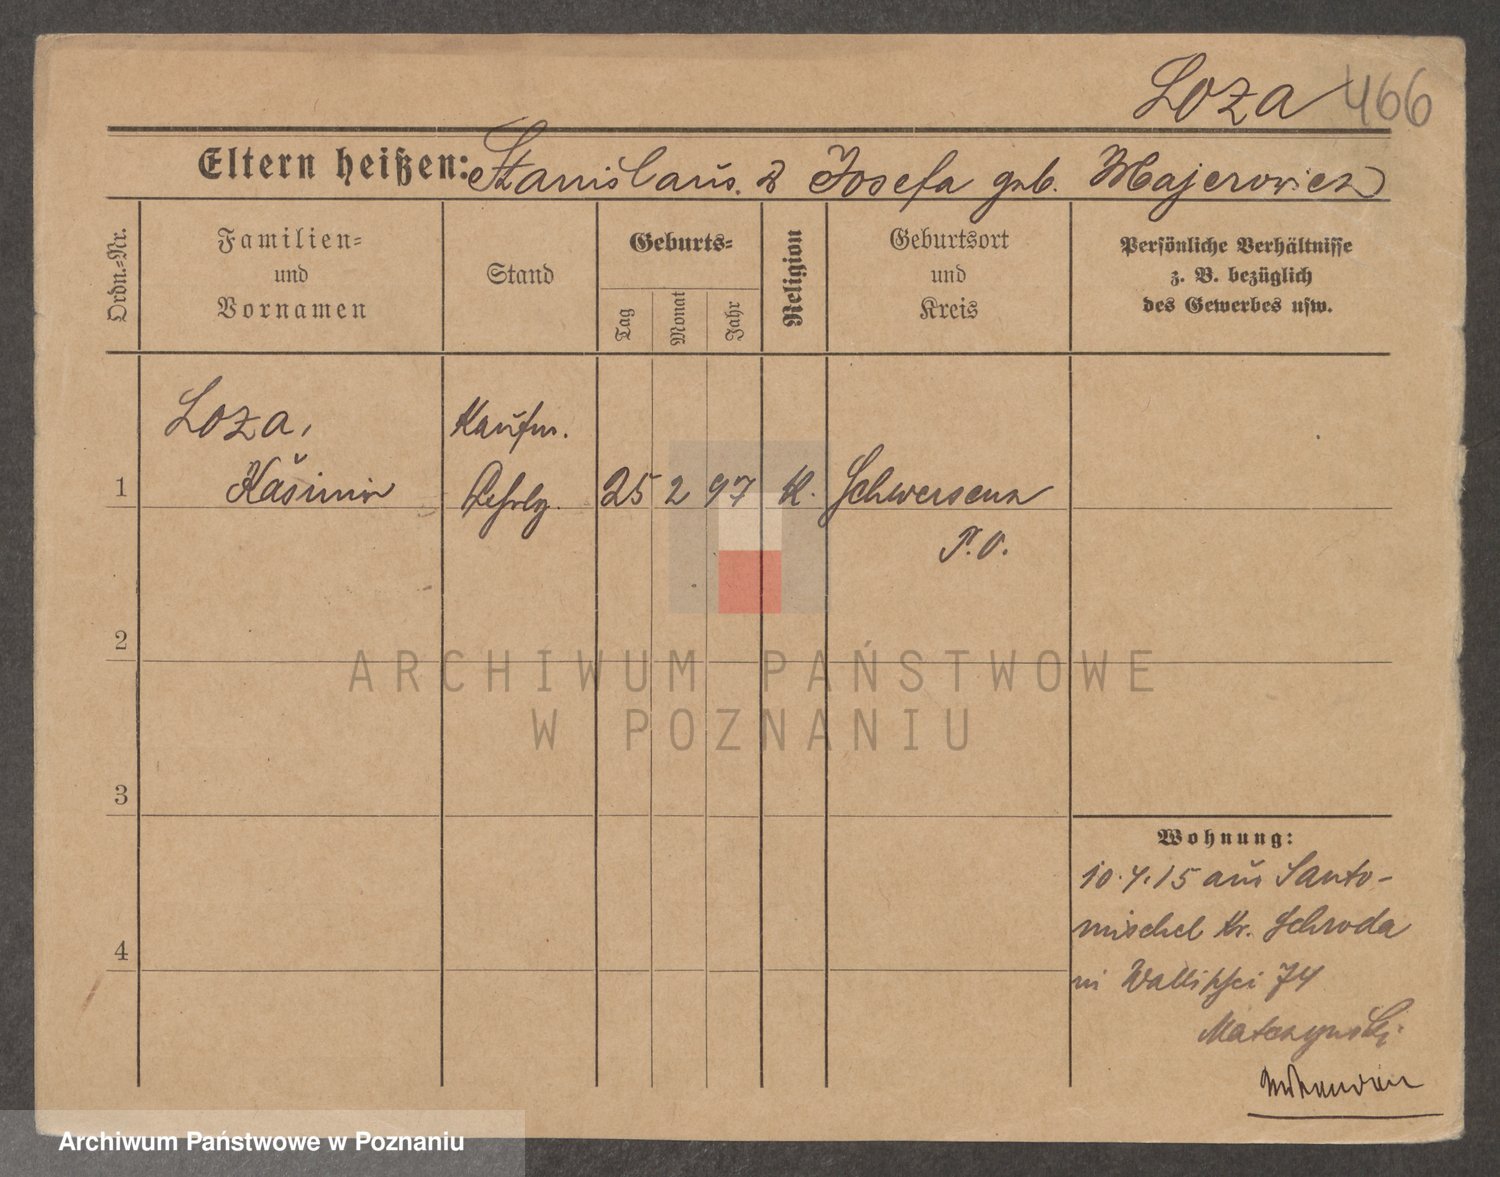 Loza 466
Eltern heißen: Stanislaus. & Josefa geb. Majerowicz
Ordn.-Nr.
Familien-
und
Vornamen
Stand
Geburts-
Tag
Monat
Jahr
Religion
Geburtsort
und
Kreis
Persönliche Verhältnisse
z. B. bezüglich
des Gewerbes usw.
Loza, Kaufm.
1 Kasimir Lehrlg. 25 2 97 K. Schwersenz
P. O.
2
ARCHIWUM PAŃSTWOWE
W POZNANIU
3
Wohnung:
10.4.15 aus Santo-
mischel Kr. Schroda
4
in Wallischei 74
Matczynski.
Archiwum Państwowe w Poznaniu